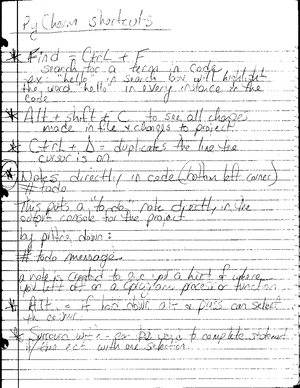 PyCharm Shortcuts
* Find = Ctrl + F
search for a term in code
ex: "hello" in search box will highlight
the word "hello" in every instance in the
code
* Alt + shift + C to see all changes
made in file & changes to project
* Ctrl + D = duplicates the line the
cursor is on.
* Notes directly in code (bottom left corner)
# todo
This puts a "to do" note directly in the
output console for the project
by putting down:
# todo message
a note is created to give you a hint of where
you left off on a program process or function
* Alt = if hold down alt &
* Surround with -
with one selection